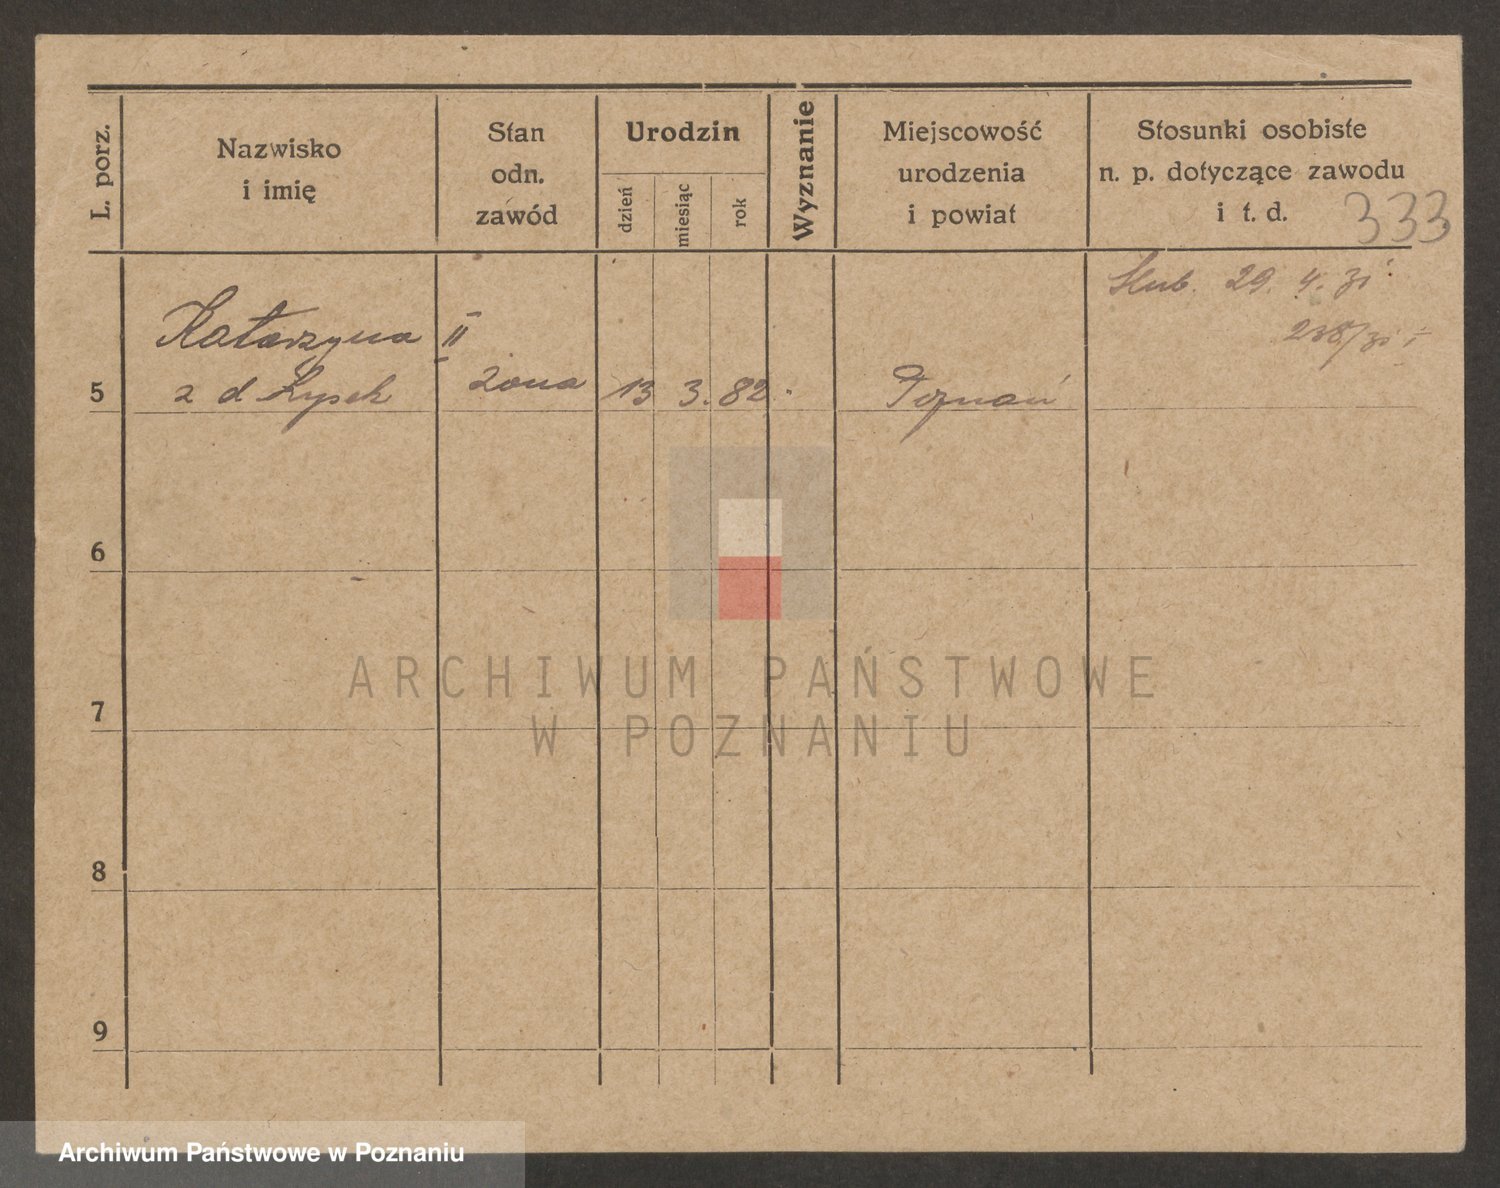 L. porz.
Nazwisko
i imię
Stan
odn.
zawód
Urodzin
dzień
miesiąc
rok
Wyznanie
Miejscowość
urodzenia
i powiat
Stosunki osobiste
n. p. dotyczące zawodu
i t. d.
333
Ślub. 29. 4. 31
238/31 I
Katarzyna II
5 z d Łysek żona 13 3. 82. Poznań
6
7
8
9
ARCHIWUM PAŃSTWOWE
W POZNANIU
Archiwum Państwowe w Poznaniu